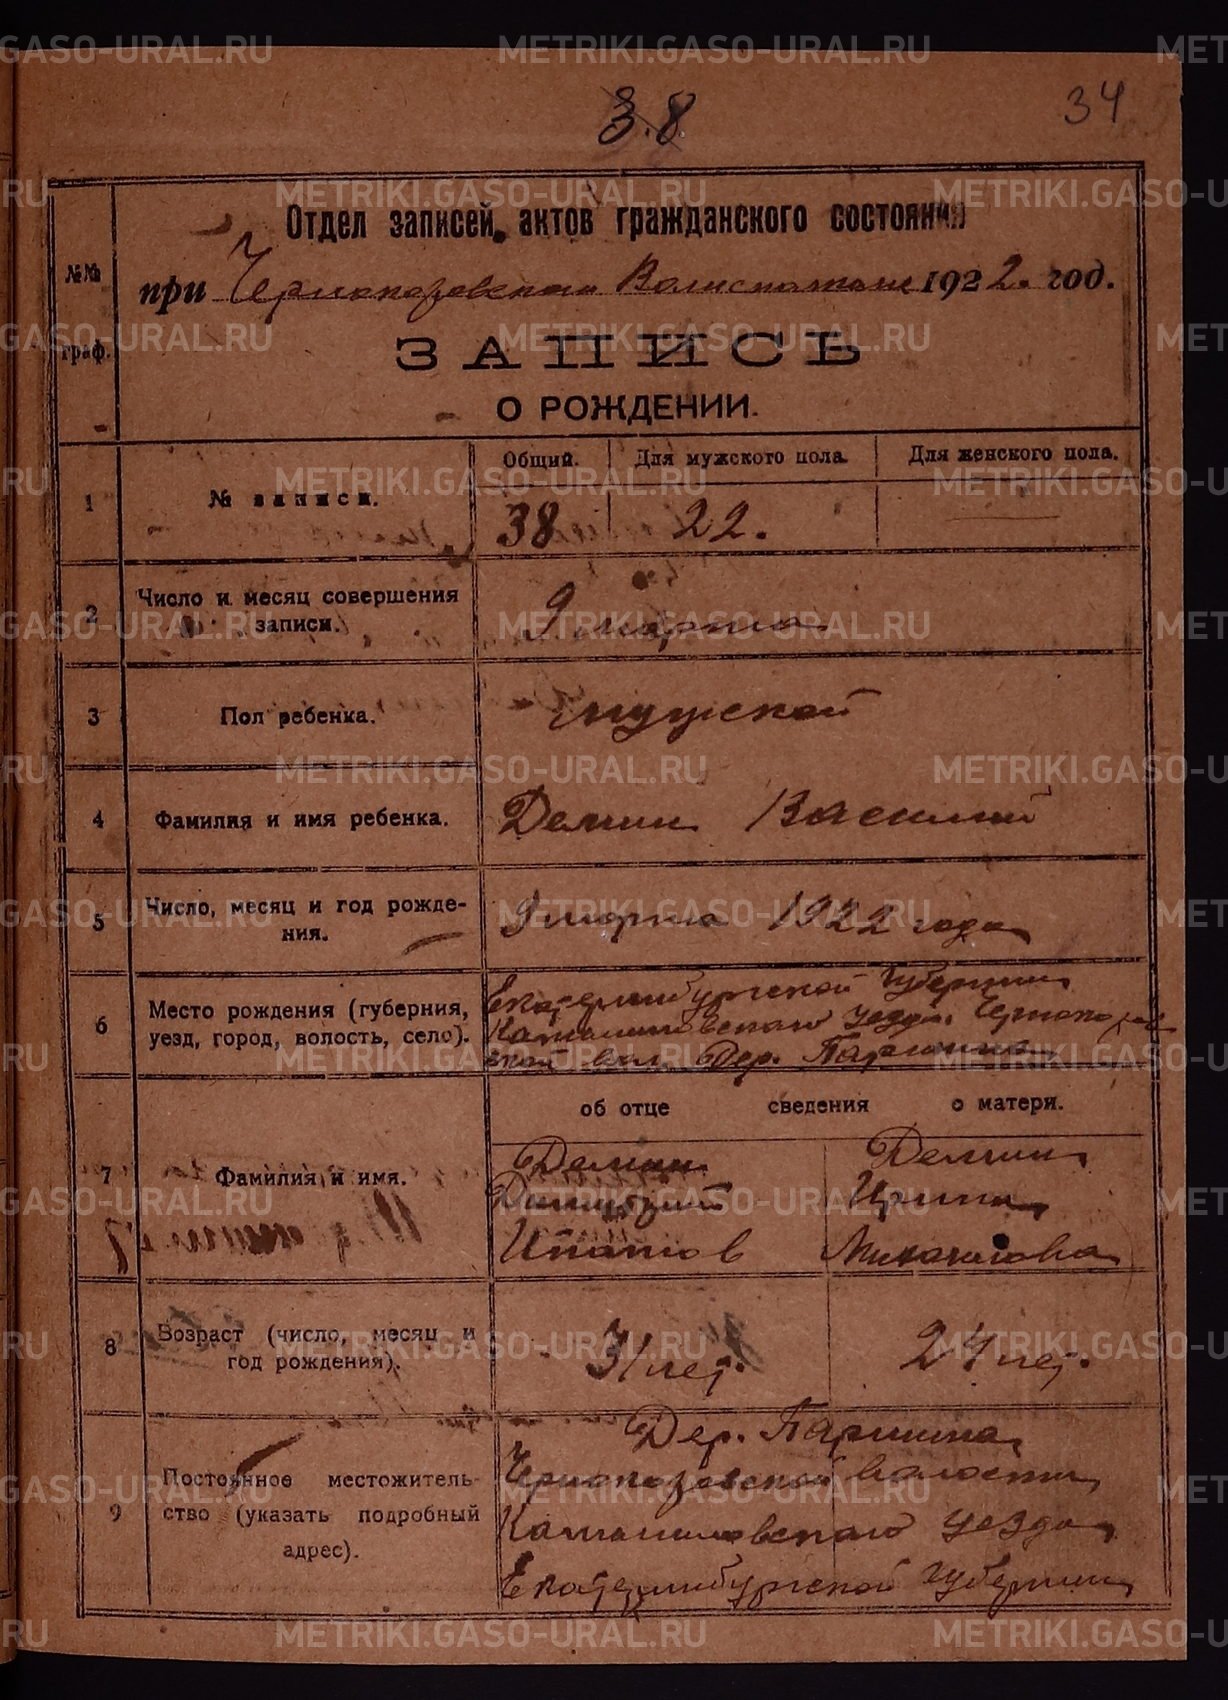 34
38
Отдел записей актов гражданского состояния
при Чернокоровском Волисполкоме 1922. год.
№№ граф.
ЗАПИСЬ
О РОЖДЕНИИ.
Общий. Для мужского пола. Для женского пола.
1 № записи. 38 22.
2 Число и месяц совершения
записи. 9 марта
3 Пол ребенка. мужской
4 Фамилия и имя ребенка. Демин Василий
5 Число, месяц и год рожде-
ния. 9 марта 1922 года
6 Место рождения (губерния,
уезд, город, волость, село).
Екатеринбургской губернии
Камышловского уезда. Чернокоров
ской вол. Дер. Паршина
об отце сведения о матери.
7 Фамилия и имя.
Демин Демин
Димитрий Ирина
Ипатов Михайлова
8 Возраст (число, месяц и
год рождения). 31 лет. 24 лет.
9 Постоянное местожитель-
ство (указать подробный
адрес).
Дер. Паршина
Чернокоровской волости
Камышловского уезда
Екатеринбургской губернии
METRIKI.GASO-URAL.RU